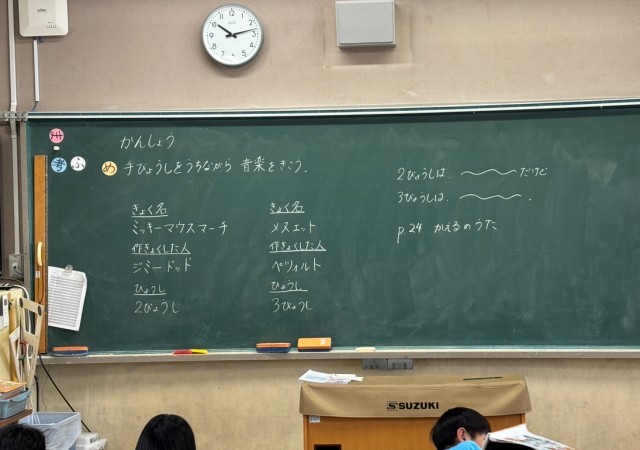 かんしょう
考 ふ め 手びょうしをうちながら 音楽をきこう.
きょく名
ミッキーマウスマーチ
作きょくした人
ジミードッド
ひょうし
2びょうし
きょく名
メヌエット
作きょくした人
ペツォルト
ひょうし
3びょうし
2びょうしは、 だけど
3びょうしは、 .
p.24 かえるのうた
SUZUKI